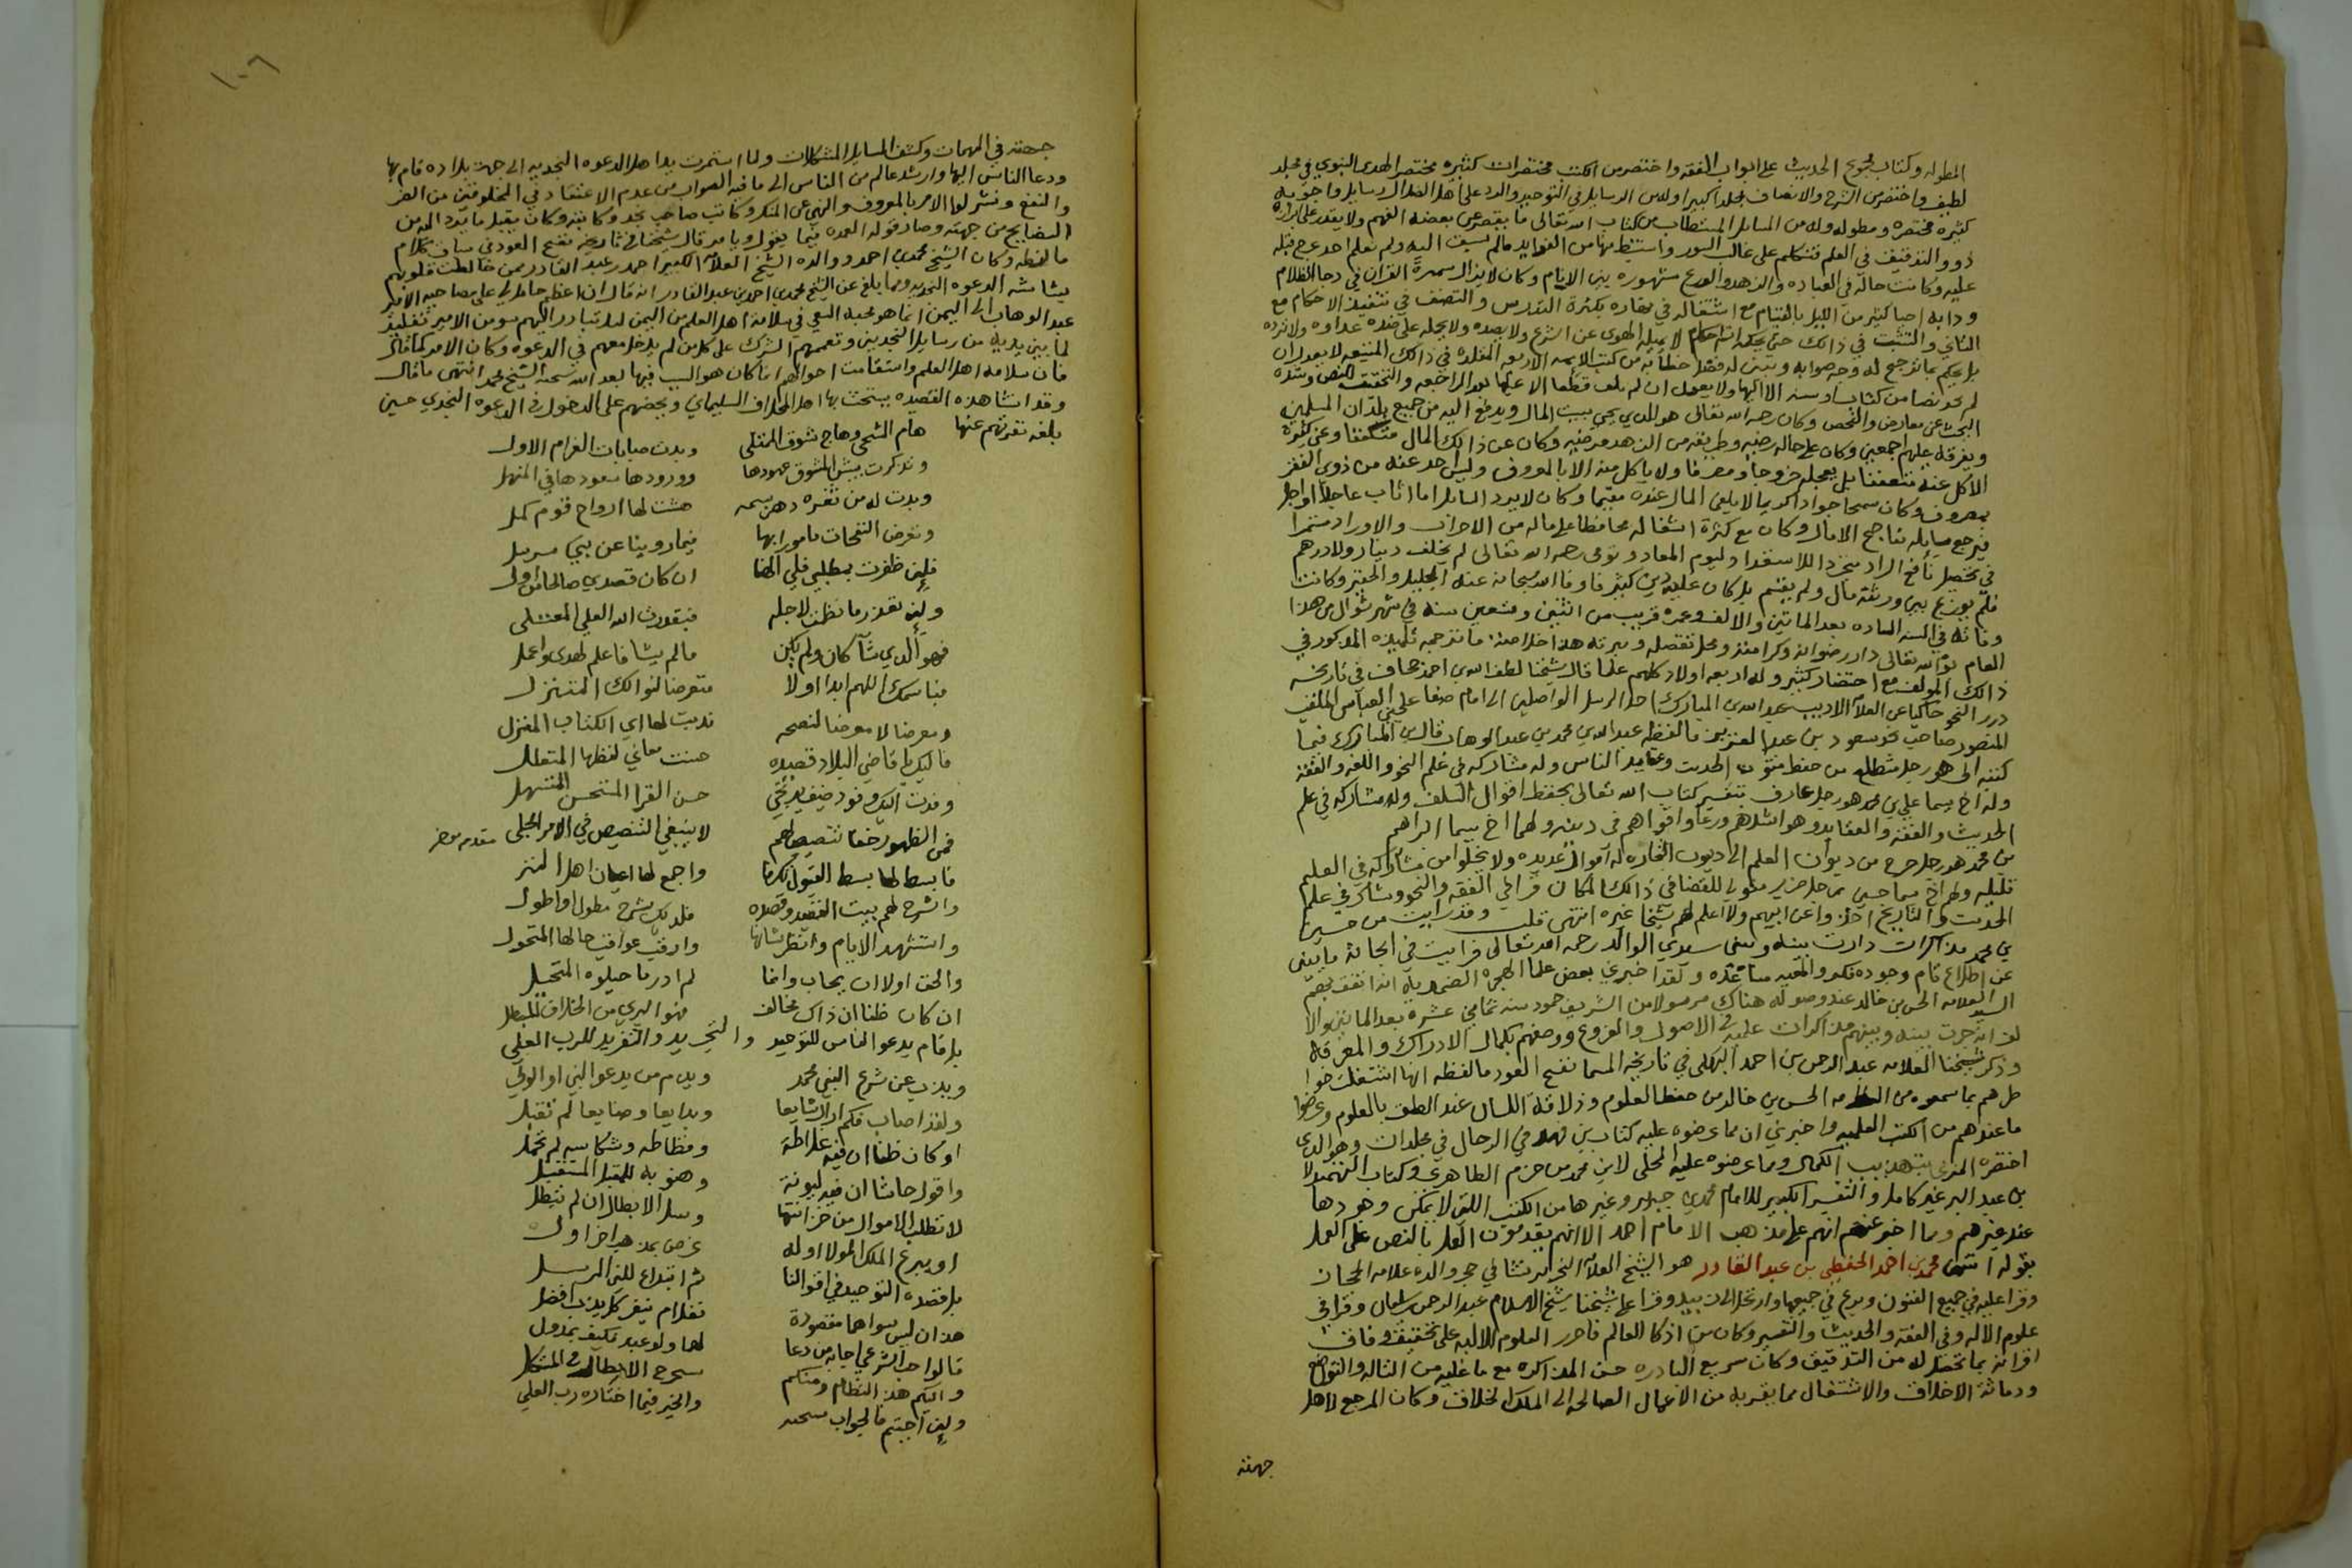 المطوله وكتاب مجموع الحديث على ابواب الفقه واختصر من الكتب مختصرات كثيره مختصر الهدى النبوي في مجلد
لطيف واختصر من الشرح والانصاف مجلدا كبيرا وله من الرسايل في التوحيد والرد على اهل الضلال رسايل واجوبه
كثيره مختصره ومطوله وله من المسايل المستنبطات من كتاب الله تعالى ما يقصر عن بعضه الفهم ولا يقدر على
ذوو التدقيق في العلم فتكلم على غالب السور واستنبط منها من الفوايد مالم يسبق اليه ولم نعلم احد عرج قبله
عليه وكانت حاله في العباده والزهد والورع مشهوره بين الانام وكان لا يزال سميره القران في دجا الظلام
ودابه احيا كثير من الليل بالقيام مع اشتغاله في نهاره بكثرة التدريس والتصنف في تنفيذ الاحكام مع
التاني والتثبت في ذالك حتى يحكمه لا يميله الهوى عن الشرع ولا يصده ولا يحمله على ضده عداوه ولا ترده
بل يحكم بما ترجح له وجه صوابه
لم يجد نصا من كتاب او سنه
البحث عن معارض والفحص وكان رحمه الله تعالى هو الذي يجبي بيت المال ويدفع اليه من جميع بلدان المسلمين
ويفرقه عليهم اجمعين وكان على حاله رضيه وطريقه من الزهد مرضيه وكان عن ذالك المال متعففا وعن كثرة
الاكل عنه متعففا بل يجعله خرجا ومصرفا ولا ياكل منه الا بالمعروف وليس احد عنده من ذوي الفقر
بمصروف وكان سمحا جوادا كريما لا يلفى المال عنده مقيما وكان لا يرد السايل اما اثاب عاجلا او اجل
فيرجع سايله بناجح الامال وكان مع كثرة اشغاله محافظا على ماله من الاحزاب والاوراد مستمرا
في تحصيل نافع الزاد
فلم يوزع بين ورثته مال ولم يقسم بل كان عليه دين كثير فاوفا الله سبحانه عنه الجليل والحقير وكانت
وفاته في السنه السادسه بعد الماتين والالف وعمره قريب من اثنين وتسعين سنه في شهر شوال من هذا
العام بوأه الله تعالى دار رضوانه وكرامته ومحل تفضله وميرته هذا خلاصة ما ترجمه تلميذه المذكور في
ذالك المولف مع اختصار كثير وله اربعه اولاد كلهم علما قال شيخنا لطف الله بن احمد جحاف في تاريخه
درر النحور حاكيا عن العلامه الاديب عبد الله بن المبارك احد الرسل الواصلين الى امام صنعا علي بن العباس الملقب
المنصور صاحب نجد سعود بن عبد العزيز ما لفظه عبد الله بن محمد بن عبد الوهاب قال بن المبارك فيما
كتبه الي هو رجل متطلع من حفظ متون الحديث وعقايد الناس وله مشاركه في علم النحو واللغه والفقه
وله اخ يسما علي بن محمد هو رجل عارف بتفسير كتاب الله تعالى يحفظ اقوال السلف وله مشاركه في علم
الحديث والفقه والعقايد وهو اشدهم ورعا واقواهم في دينه ولهما اخ يسما ابراهيم
بن محمد هو رجل خرج من ديوان العلم الى ديوان التجاره له اموال عديده ولا يخلوا من مشاركه في العلم
قليله ولهم اخ يسما حسين بن محمد رجل ضرير متولي للقضا في ذالك المكان قراء في الفقه والنحو ومشارك في علم
الحديث والتاريخ اخذوا عن ابيهم ولا اعلم لهم شيخا غيره انتهى قلت وقد رايت من حسين
بن محمد مذاكرات دارت بينه وبين سيدي الوالد رحمه الله تعالى فرايت في ابحاثه ما يبنى
عن اطلاع تام وجوده فكر والمعيه مساعده ولقد اخبرني بعض علما الهجرة الضمديه انه اتفق بهم
السيد العلامه الحسن بن خالد عند وصوله هناك مرسولا من الشريف حمود سنه ثماني عشره بعد المايتين والا
لف انه جرت بينه وبينهم مذاكرات علميه في الاصول والفروع ووصفهم بكمال الادراك والمعرفه
وذكر شيخنا العلامه عبد الرحمن بن احمد البهكلي في تاريخه المسما نفح العود ما لفظه انها اشتغلت خوا
طرهم بما سمعوه من العلامه الحسن بن خالد من حفظ العلوم وذلاقة اللسان عند النطق بالعلوم وعرضوا
ما عندهم من الكتب العلميه واخبرني ان مما عرضوه عليه كتاب بن في الرجال في مجلدات وهو الذي
اختصره المزي بتهذيب الكمال ومما عرضوه عليه المحلى لابن محمد بن حزم الظاهري وكتاب التمهيد لا
بن عبد البر غير كامل والتفسير الكبير للامام محمد بن جرير وغيرها من الكتب اللتي لا يمكن وجودها
عند غيرهم ومما اخبر عنهم انهم على مذهب الامام احمد الا انهم يقدمون العمل بالنص على العمل
بقوله انتهى محمد بن احمد الحفظي بن عبد القادر هو الشيخ العلامه النحرير نشا في حجر والده علامه الحجاز
وقرا عليه في جميع الفنون وبرع في جميعها وارتحل الى زبيد وقرا على شيخنا شيخ الاسلام عبد الرحمن بن سليمان وقرا في
علوم الاله وفي الفقه والحديث والتفسير وكان من اذكا العالم فاحرز العلوم الاليه على تحقيق وفاق
اقرانه بما تحصل له من التدقيق وكان سريع البادره حسن المذاكره مع ما عليه من التاله والتواضع
ودماثة الاخلاق والاشتغال بما يقربه من الاعمال الصالحه الى الملك الخلاق وكان المرجع لاهل
جهته
١٠٦
جهته في المهمات وكشف المسايل المشكلات ولما استمرت يد اهل الدعوه النجديه الى جهة بلاده قام بها
ودعا الناس اليها وارشد عالم من الناس الى ما فيه الصواب من عدم الاعتقاد في المخلوقين من الضر
والنفع ونشر لوا الامر بالمعروف والنهي عن المنكر وكاتب صاحب نجد وكاتبه وكان يقبل ما يرد اليه من
النصايح من جهته وصار قوله العمده فيما يقول ويامر قال شيخنا في تاريخه نفح العود في سياق كلام
ما لفظه وكان الشيخ محمد بن احمد ووالده الشيخ العلامه الكبير احمد بن عبد القادر ممن خالطت قلوبهم
بشاشه الدعوه النجديه ومما بلغ عن الشيخ محمد بن احمد بن عبد القادر انه قال ان اعظم حامل لي على مصاحبه الامير
عبد الوهاب الى اليمن انما هو محبه السعي في سلامة اهل العلم من اليمن
لما بين يديه من رسايل النجديين وتعميمهم الشرك على كل من لم يدخل معهم في الدعوه وكان الامر كما قال
فان سلامه اهل العلم واستقامت احوالهم انما كان هو السبب فيها بعد الله سبحنه الشيخ محمد انتهى ما قال
وقد انشا هذه القصيده يستحث بها اهل المخلاف السليماني ويحضهم على الدخول في الدعوه النجدي حين
بلغه نفرتهم عنها
هام الشجي وهاج شوق المبتلى وبدت صبابات الغرام الاول
وتذكرت بيش المشوق عهودها وورودها سعودها في المنهل
وبدت له من ثغره دهر بسمه هشت لها ارواح قوم كمل
وتعرض النفحات مامور بها فيما روينا عن نبي مرسل
فلإن ظفرت بمطلبي فلي الهنا ان كان قصدي صالحا
ولإن تعذر ما نظمت لاجله فبقدرت الله العلي المعتلى
فهو الذي شآ كان ولم يكن مالم يشا فاعلم لهدى واعمل
فباسمك اللهم ابدا اولا متعرضا لنوالك المتنزل
ومعرضا لا معرضا لنصيحه ندبت لها اي الكتاب المنزل
فاليك يا قاضي البلاد قصيده حسنت معاني لفظها
وفدت اليك وفود ضيف يرتجي حسن القرا المستحسن المتسهل
فمن الظهور خفا تنصيص لهم لا ينبغي التنصيص في الامر الجلي مقدم موخر
فابسط لها بسط القبول تكرما واجمع لها اعيان اهل المنزل
واشرح لهم بيت القصيد وقصده فلديك شرح مطول او اطول
واستشهد الايام وانظر شانها وارقب عواقب حالها المتحول
والحق اولا ان يجاب وانما لم ادر ما حيلوه المتحيل
ان كان ظنا ان ذاك مخالف فهو البري من الخلاف المبطل
بل قام يدعو الناس للتوحيد والتجريد والتفريد للرب العلي
ويذب عن شرع النبي محمد ويذم من يدعو النبي او الولي
ولقد اصاب فكم ازال شنايعا وبدايعا وصنايعا لم تقبل
او كان ظنا ان فيه غلاظة وفظاظه وشكاسه لم تحمل
واقول حاشا ان فيه ليونة وهنو به للمقبل المستقبل
لا تطلب الاموال من خزانتها وسل الابطال ان لم تبطل
او يبرع الملك المولا اوله غرض بمذهب اخر اول
بل قصده التوحيد في اقوالنا ثم اتباع للنبي المرسل
هذان ليس سواهما مقصودة
قالوا صبا الشرعي اجابه من دعا
واليكم هذا النظام ومنكم
ولإن اجبتم فالجواب والخير فيما اختاره رب العلي